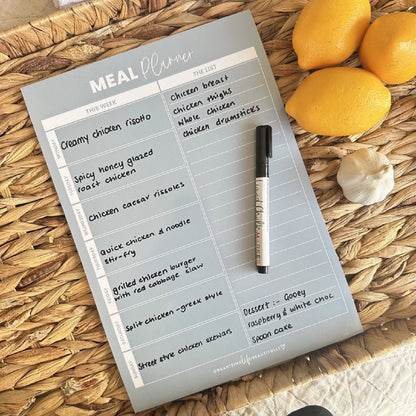 MEAL Planner
THIS WEEK
THE LIST
Creamy chicken risotto
Spicy honey glazed
roast chicken
Chicken caesar rissoles
Quick chicken & noodle
stir-fry
grilled chicken burger
with red cabbage slaw
Split chicken - greek style
Street style chicken skewers
Chicken breast
Chicken thighs
Whole chicken
Chicken drumsticks
Dessert :- Gooey
raspberry & white choc
Spoon cake